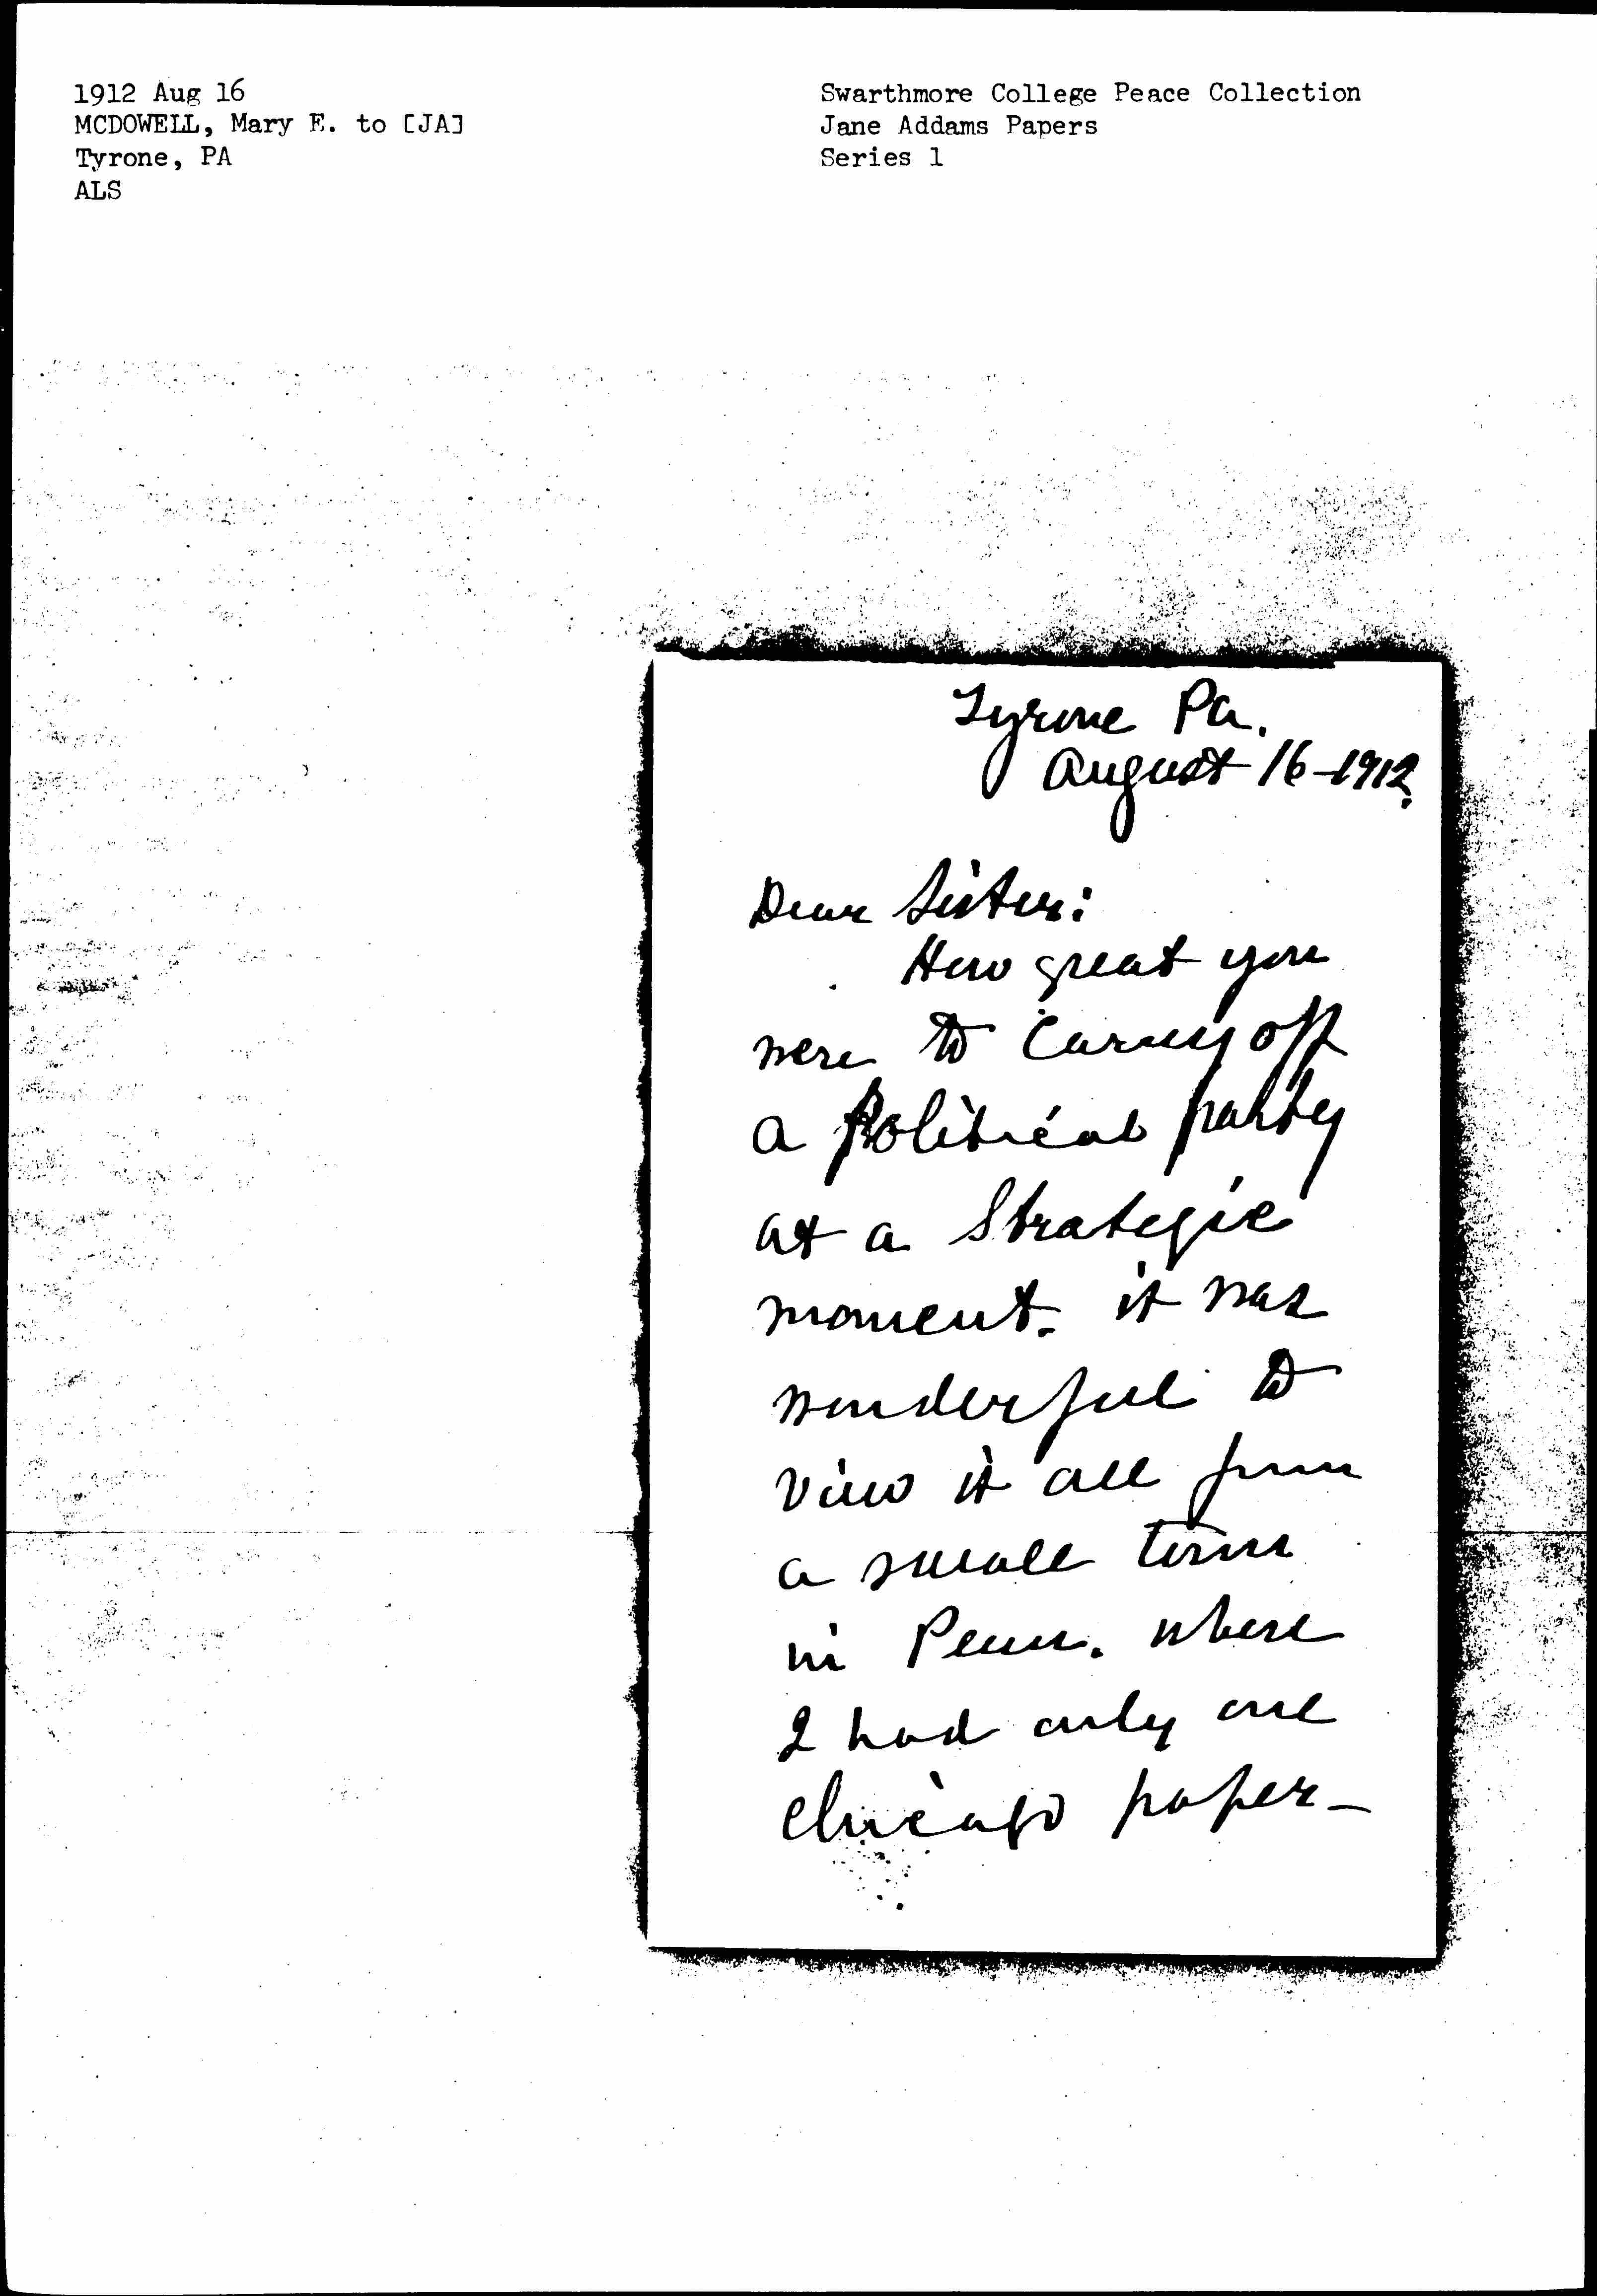 1912 Aug 16
MCDOWELL, Mary E. to [JA]
Tyrone, PA
ALS
Swarthmore College Peace Collection
Jane Addams Papers
Series 1
Tyrone Pa.
August 16-1912.
Dear Sister:
How great you
were to carry off
a Political party
at a Strategic
moment. it was
wonderful to
view it all from
a small town
in Penn. where
I had only one
Chicago paper—